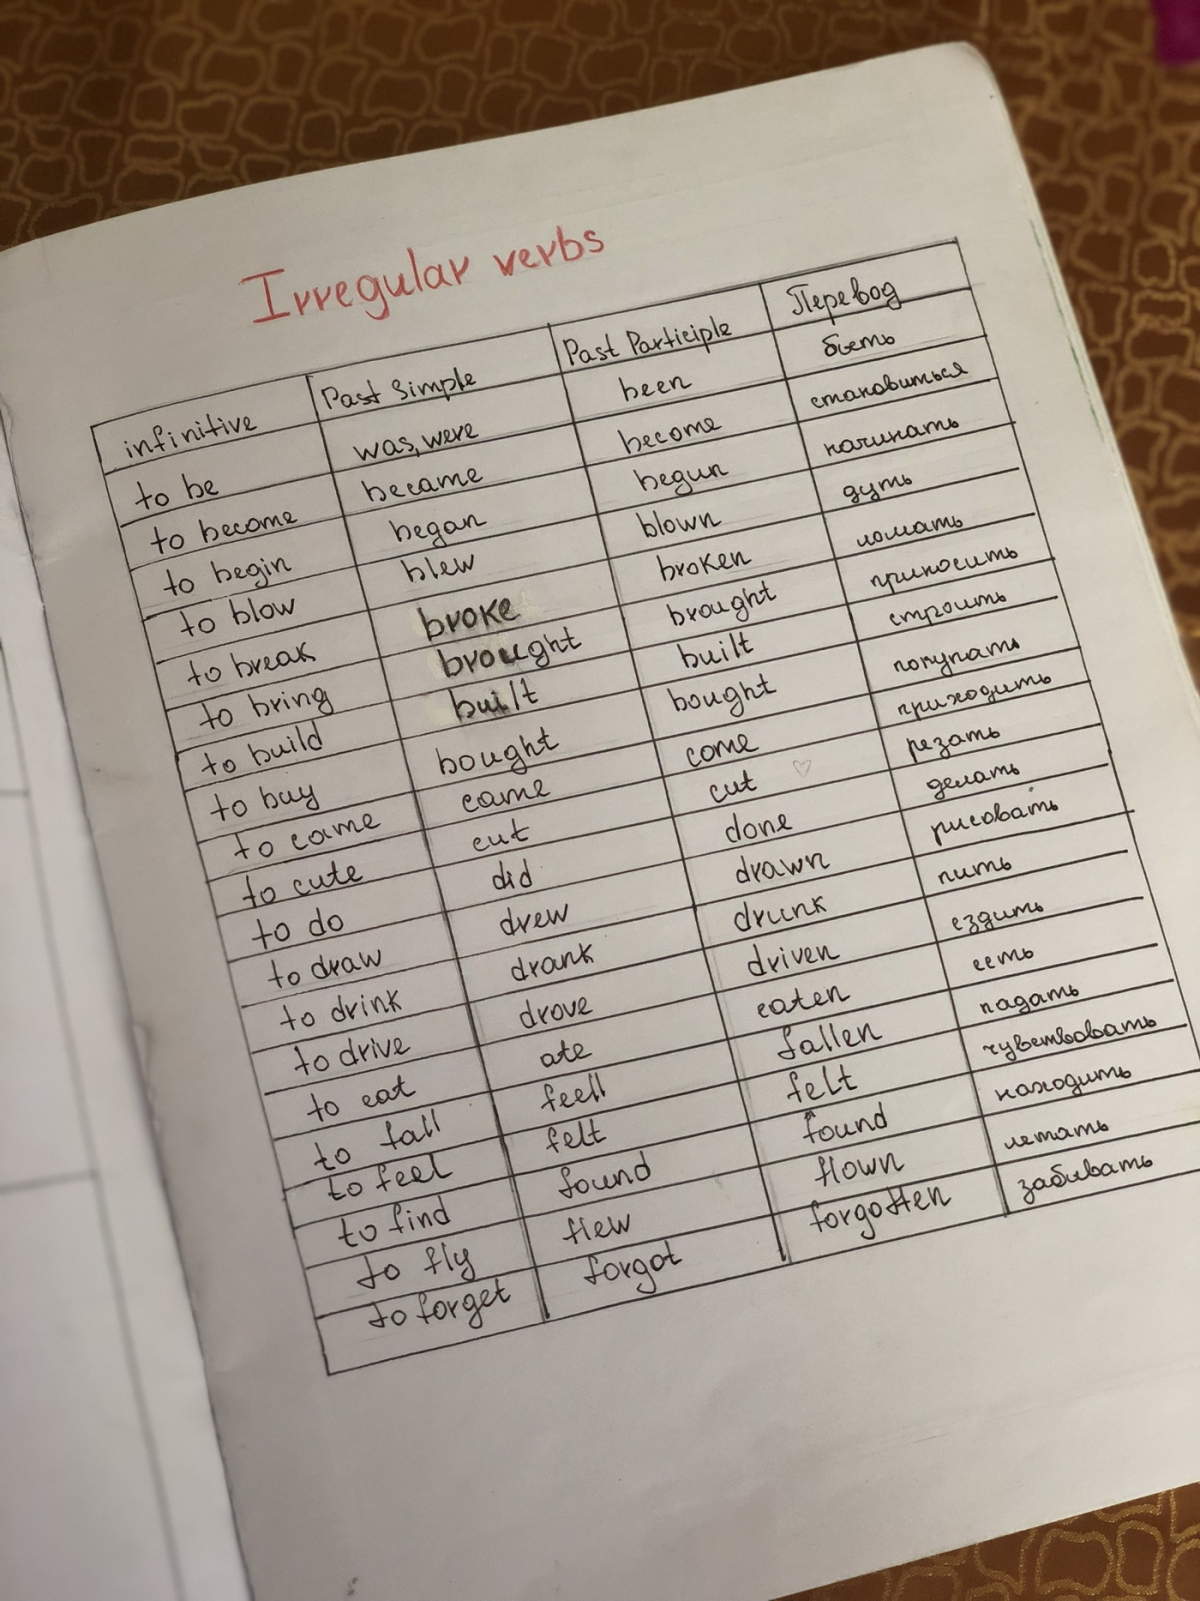 Irregular verbs
infinitive Past Simple Past Participle Перевод
to be was, were been быть
to become became become становиться
to begin began begun начинать
to blow blew blown дуть
to break broke broken ломать
to bring brought brought приносить
to build built built строить
to buy bought bought покупать
to came came come приходить
to cute cut cut резать
to do did done делать
to draw drew drawn рисовать
to drink drank drunk пить
to drive drove driven ездить
to eat ate eaten есть
to fall feell fallen падать
to feel felt felt чувствовать
to find found found находить
to fly flew flown летать
to forget forgot forgotten забивать